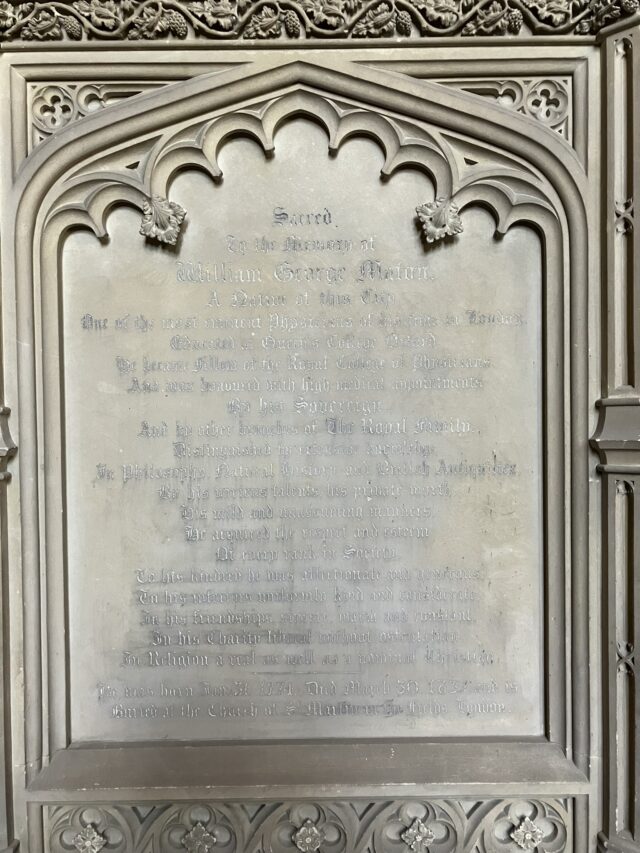 Sacred
To the Memory of
William George Maton.
A Native of this City
One of the most eminent Physicians of London.
Educated at Queen's College Oxford.
He became Fellow of the Royal College of Physicians.
And was honoured with high medical appointments
By his Sovereign
And by other branches of The Royal Family.
Distinguished by extensive knowledge
In Philosophy, Natural History and British Antiquities,
By his various talents, his private worth
His mild and unassuming manners,
He acquired the respect and esteem
Of every rank in Society.
To his kindred he was affectionate and generous
To his inferiors uniformly kind and considerate
In his friendships sincere and constant
In his Charity liberal without ostentation
In Religion a real as well as a Christian.
He was born Jany 31. 1774. Died March 30. 1835 and is
Buried at the Church of St Martin in the Fields London.